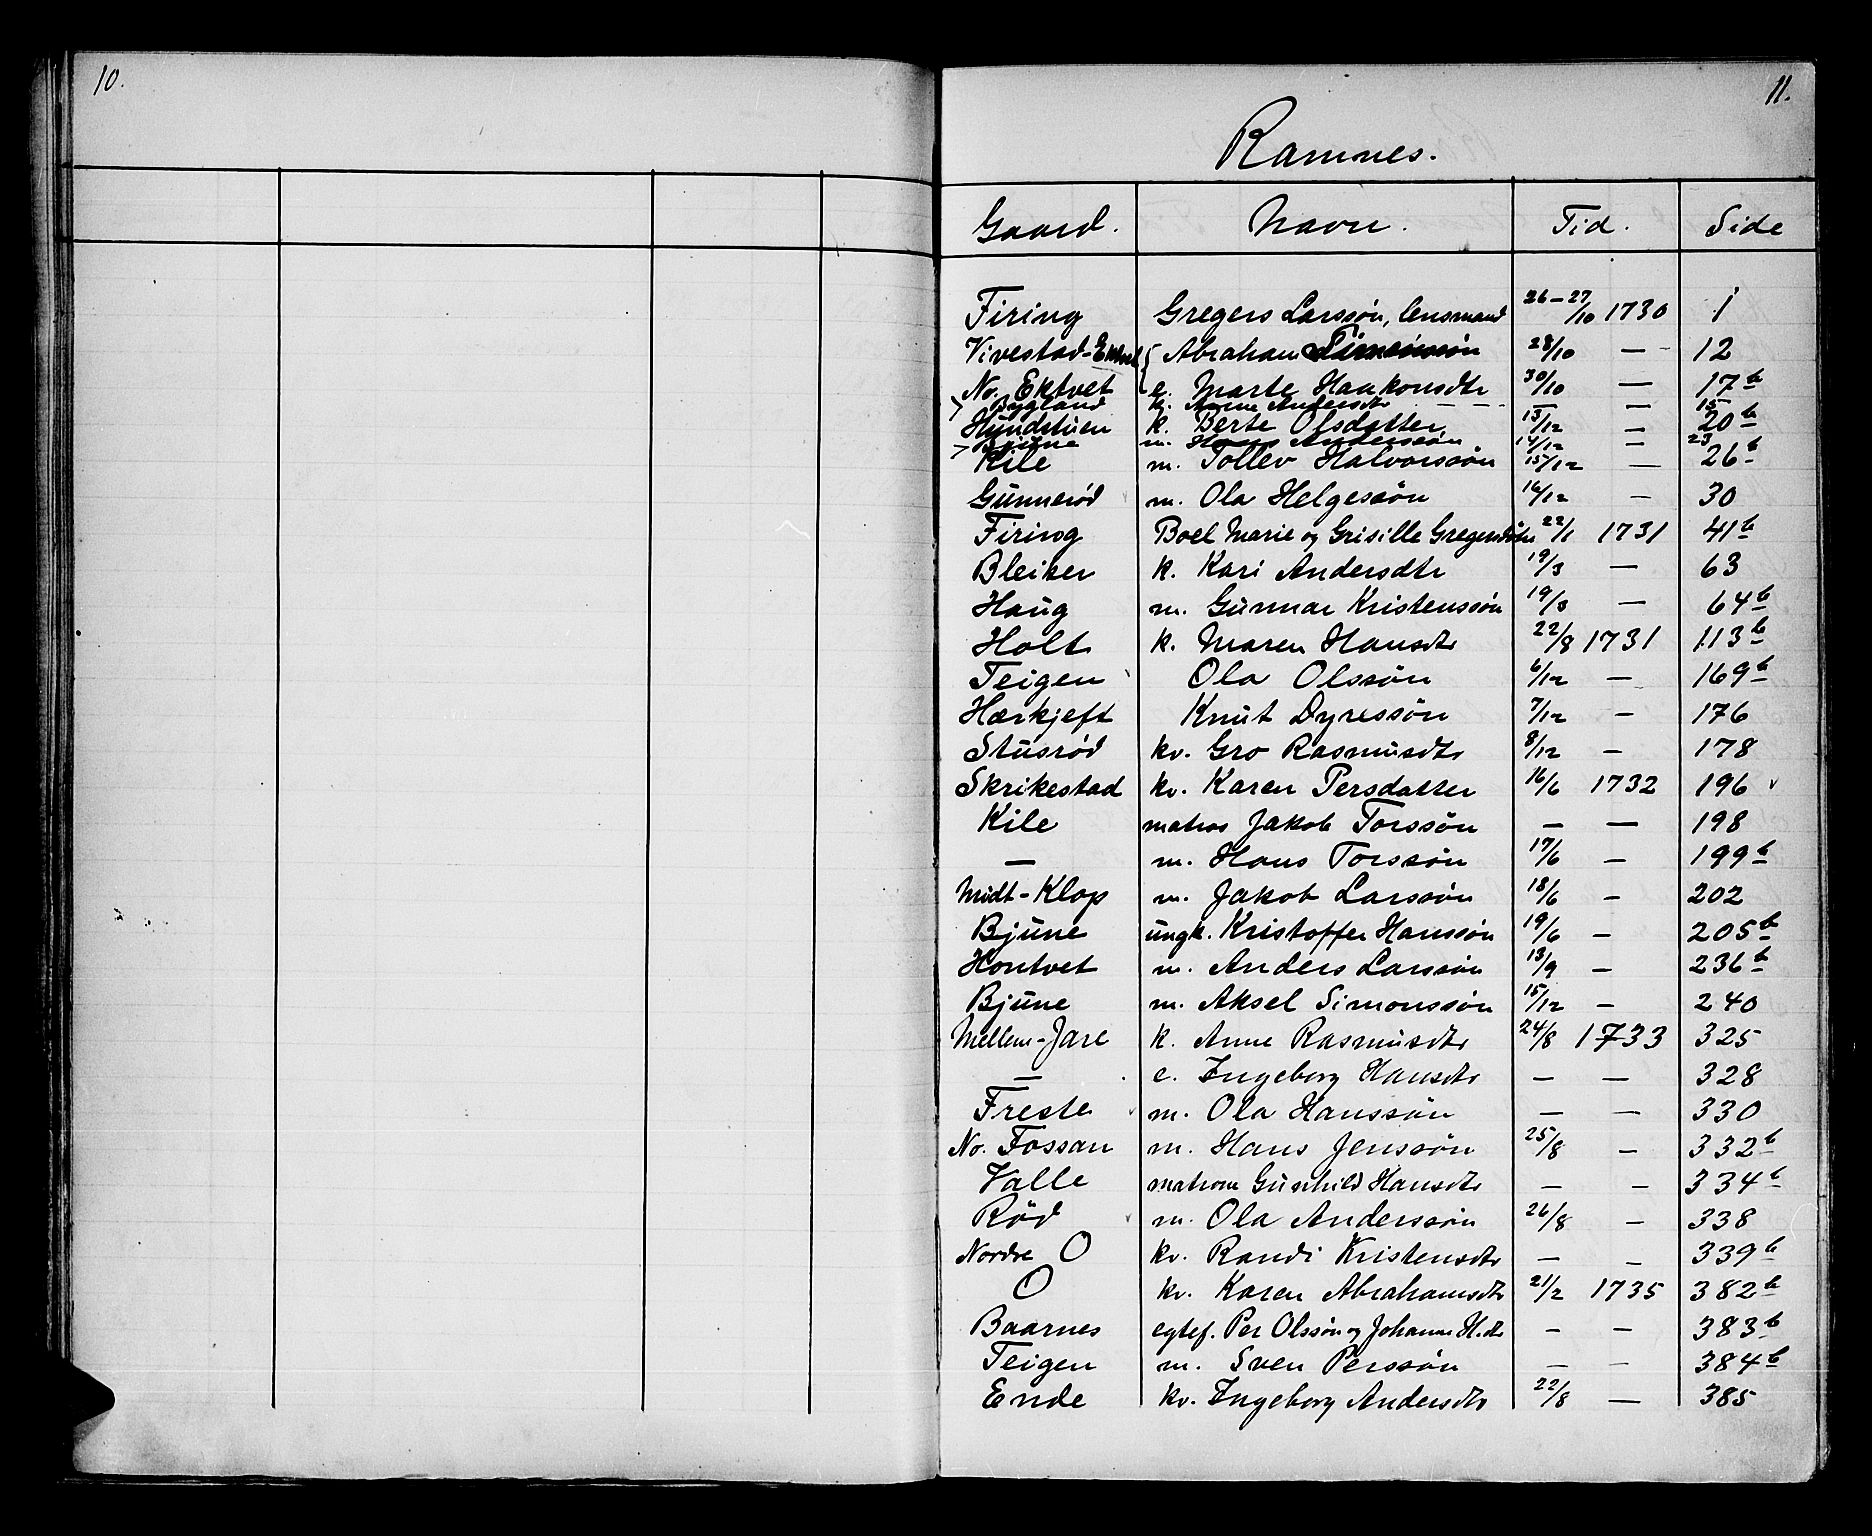 10.
11.
Ramnes.
Gaard. Navn. Tid. Side
Firing Gregers Larssøn, lensmand 26-27/10 1730 1
Vivestad- Abraham Simenssøn 28/10 — 12
No. Ektvet e. Marte Haakonsdtr 30/10 — 17b
Bygland k. Anne Andersdtr — — 15
Hundstuen k. Berte Olsdatter 13/12 — 20b
Bjune m. Hans Anderssøn 14/12 — 23
Kile m. Tollev Halvorssøn 15/12 — 26b
Gunnerød m. Ola Helgessøn 16/12 — 30
Firing Boel Marie og Grisille Gregersdøtre 22/1 1731 41b
Bleiker k. Kari Andersdtr 19/3 — 63
Haug m. Gunnar Kristenssøn 19/3 — 64b
Holt k. Maren Hansdtr 22/8 1731 113b
Teigen Ola Olssøn 6/12 — 169b
Hærkjeft Knut Dyressøn 7/12 — 176
Stusrød kv. Gro Rasmusdtr 8/12 — 178
Skrikestad kv. Karen Persdatter 16/6 1732 196
Kile matros Jakob Torssøn — — 198
— m. Hans Torssøn 17/6 — 199b
Midt-Klop m. Jakob Larssøn 18/6 — 202
Bjune ungk. Kristoffer Hanssøn 19/6 — 205b
Hontvet m. Anders Larssøn 13/9 — 236b
Bjune m. Aksel Simonssøn 15/12 — 240
Mellem-Jare k. Anne Rasmusdtr 24/8 1733 325
— e. Ingeborg Hansdtr — — 328
Freste m. Ola Hanssøn — — 330
No. Fossan m. Hans Jenssøn 25/8 — 332b
Valle matrone Gunhild Hansdtr — — 334b
Rød m. Ola Anderssøn 26/8 — 338
Nordre O kv. Randi Kristensdtr — — 339b
O kv. Karen Abrahamsdtr 21/2 1735 382b
Baarnes egtef. Per Olssøn og Johanne H.dtr — — 383b
Teigen m. Sven Perssøn — — 384b
Ende kv. Ingeborg Andersdtr 22/8 — 385